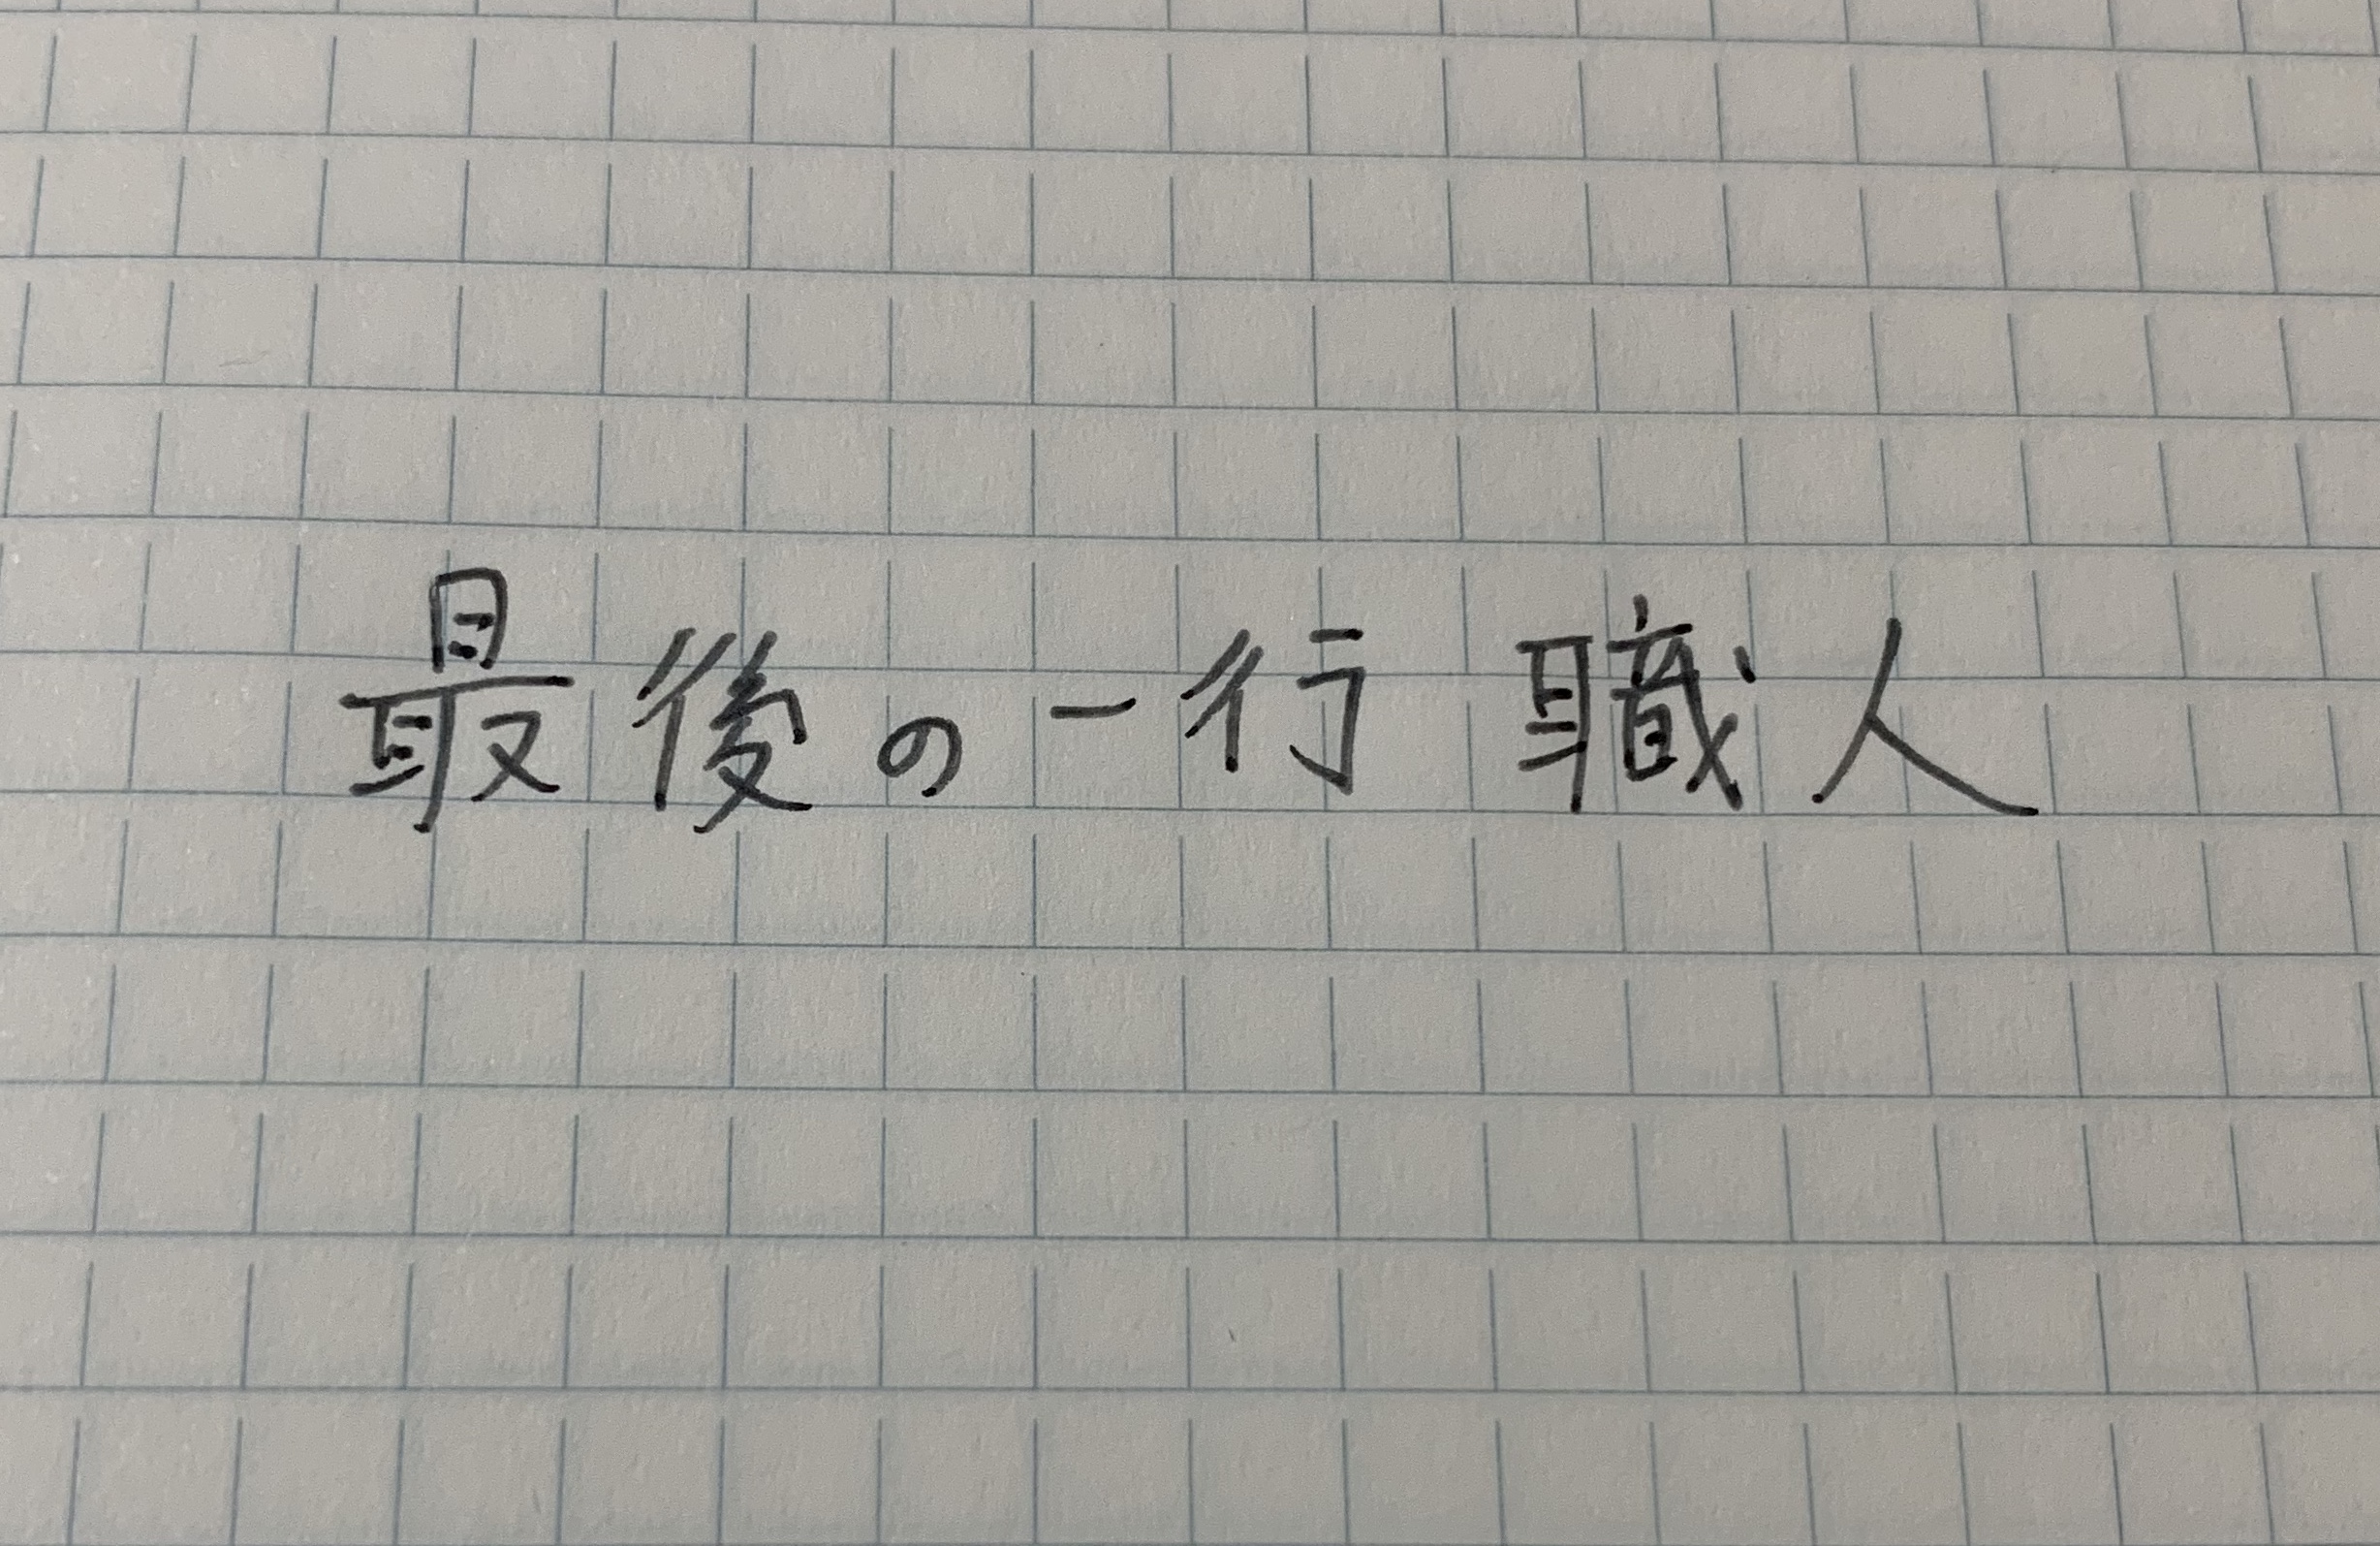 最後の一行職人